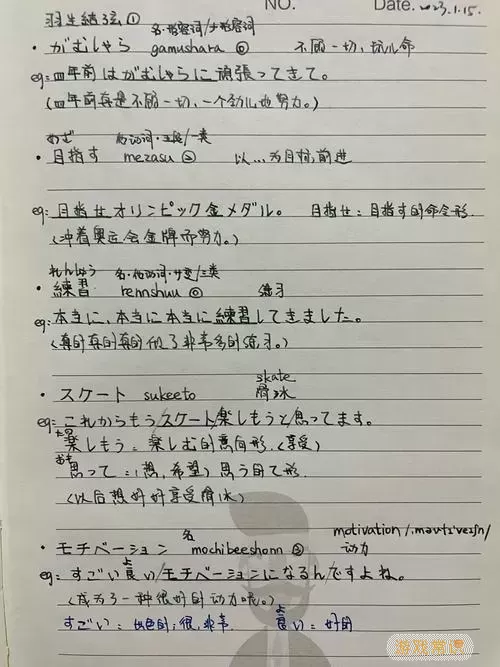 NO.
Date. 2023.1.15.
羽生結弦①
名·形容词/ナ形容词
・がむしゃら gamushara ⓪ 不顾一切,玩儿命
eg:四年前はがむしゃらに頑張ってきて。
(四年前真是不顾一切,一个劲儿地努力。)
めざ 他动词·五段/一类
・目指す mezasu ② 以…为目标,前进
eg:目指せオリンピック金メダル。 目指せ:目指す的命令形
(冲着奥运会金牌而努力。)
れんしゅう 名·他动词·サ变/三类
・練習 rennshuu ⓪ 练习
eg:本当に、本当に本当に練習してきました。
(真的真的真的做了非常多的练习。)
skate
・スケート sukeeto 滑冰
eg:これからもう/スケート/楽しもうと思ってます。
たの
楽しもう:楽しむ的意向形.(享受)
おも
思って:(想,希望)思う的て形
(以后想好好享受滑冰)
名 motivation
・モチベーション mochibeeshonn ③ 动力
よ
eg:すごい良い/モチベーションになるんですよね。
(成为了一种很好的动力呢。)
よ
すごい:出色的;很,非常 良い:好的
游戏常